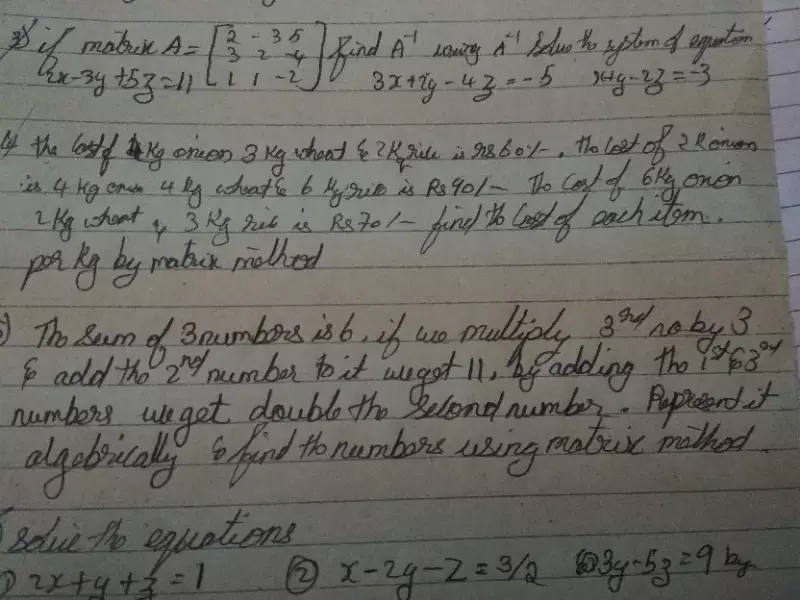 3) if matrix A = [2 -3 5 find A⁻¹ using A⁻¹ solve the system of equation
3 2 -4
2x-3y+5z=11 1 1 -2] 3x+2y-4z=-5 x+y-2z=-3
the cost of 4 Kg onion 3 Kg wheat & 2 Kg rice is rs 60/-. The cost of 2 K onion
is 4 Kg onion 4 Kg wheat & 6 Kg rice is Rs 90/- The cost of 6 Kg onion
2 Kg wheat & 3 Kg rice is Rs 70/- find the cost of each item.
per Kg by matrix method
The sum of 3 numbers is 6. if we multiply 3rd no by 3
& add the 2nd number to it we get 11, by adding the 1st & 3rd
numbers we get double the second number. Represent it
algebrically & find the numbers using matrix method.
solve the equations
1) 2x+y+z=1 (2) x-2y-z=3/2 3y-5z=9 by